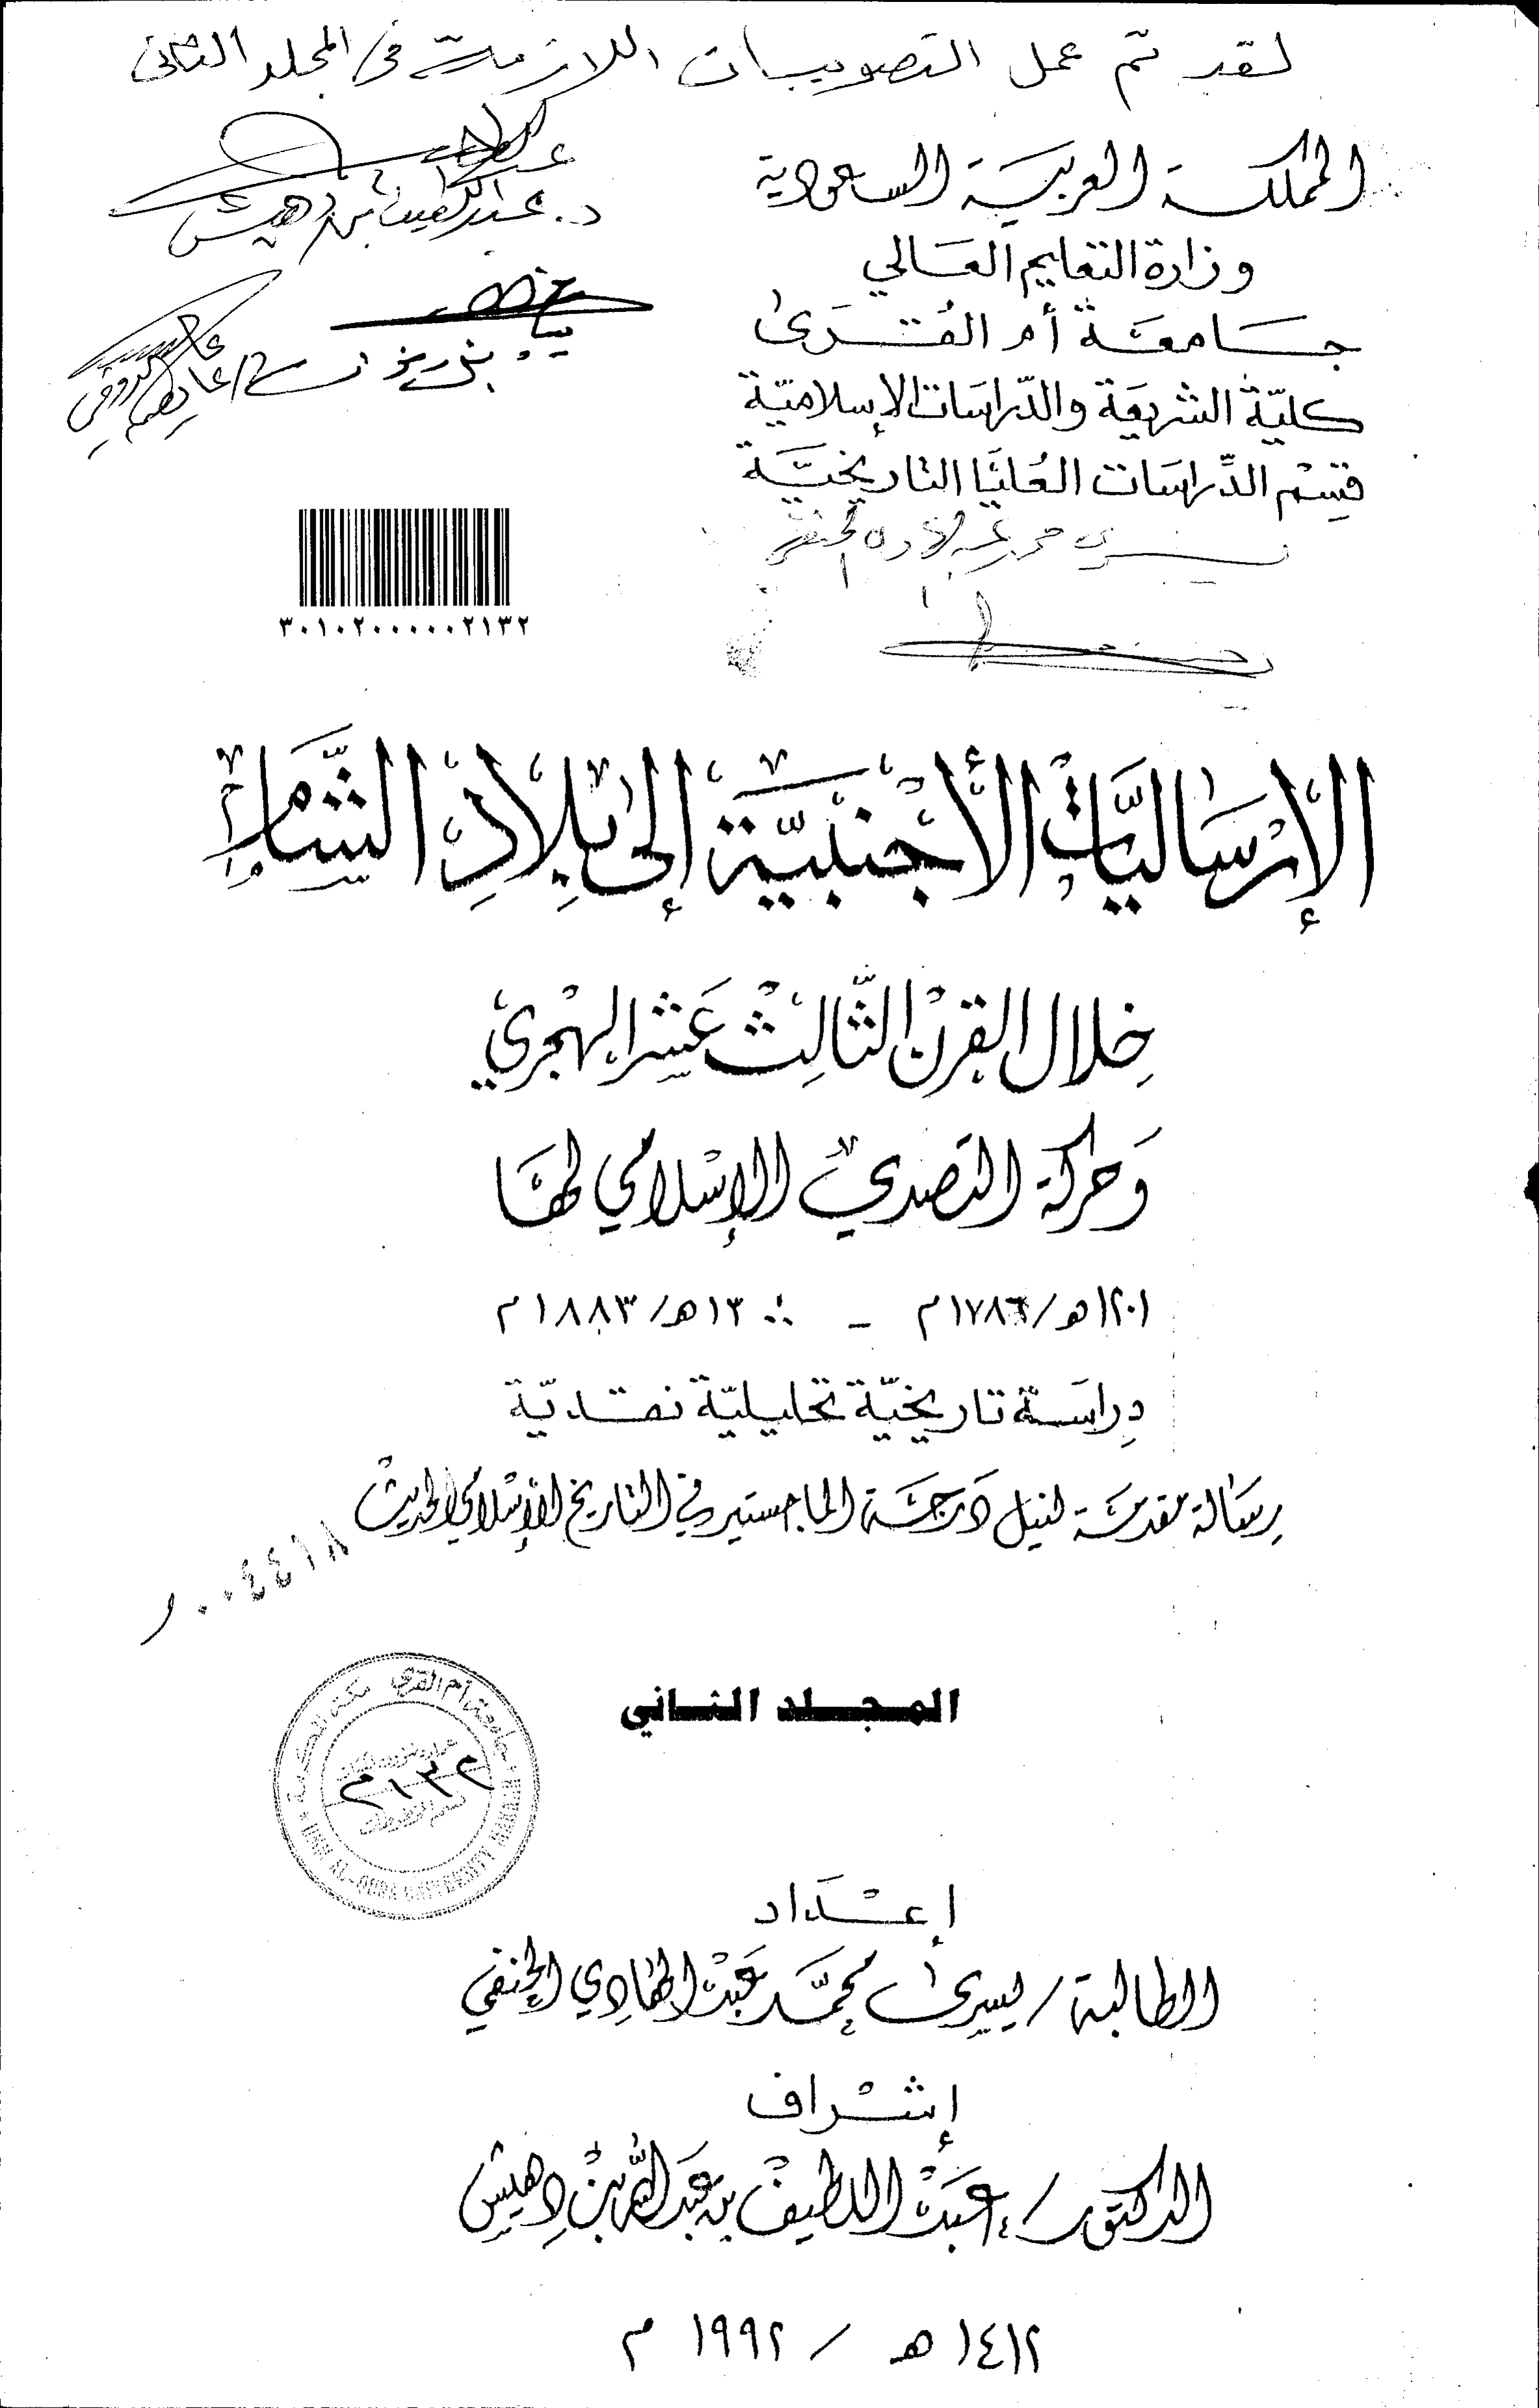 لقد تمّ عمل التصويبات اللازمة في المجلد الثاني
المملكة العربيَّة السعودية
وزارة التعليم العَالي
جَامعَة أم القُرَىٰ
كليّة الشريعَة والدّراسَات الإسلاميّة
قِسْم الدِّراسَات العُليَا التاريخيَّة
د. عبداللطيف بن دهيش
يسرى محمد عبدالهادي الحنفي
٣٠١٠٢٠٠٠٠٠٠٢١٣٢
الإرْسَاليَّاتُ الأجْنَبيَّة إلىٰ بِلَادِ الشَّامِ
خِلال القرنْ الثَّالِثْ عَشر الهْجري
وَحركة التصدي الإسْلامي لهَا
١٢٠١هـ/١٧٨٦م - ١٣٠٠هـ/١٨٨٣م
دِراسَة تاريخيّة تحليليّة نقديّة
رِسَالة مقدمَة لنيل دَرجَة الماجستير في التاريخ الإسْلامي الحديثْ
٠٠٤٤١٨
المجلد الثاني
جامعة أم القرى مكة المكرمة
٢١٣٢
UMM AL-QURA UNIVERSITY
إعْدَاد
الطالبة / يسرىٰ محمَّد عَبْد الهَادِي الحنفي
إشْراف
الدكتور / عَبْد اللطيفْ بن عَبدالله بنْ دِهيش
١٤١٢هـ / ١٩٩٢م